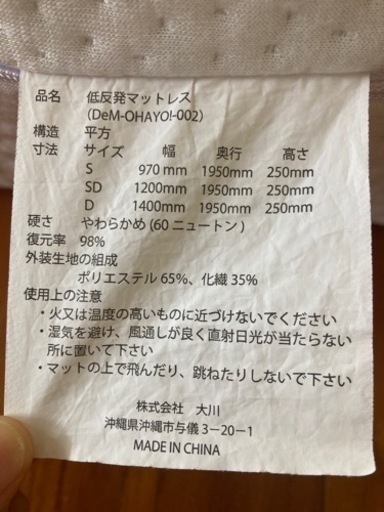 品名 低反発マットレス
(DeM-OHAYO!-002)
構造 平方
寸法 サイズ 幅 奥行 高さ
S 970 mm 1950mm 250mm
SD 1200mm 1950mm 250mm
D 1400mm 1950mm 250mm
硬さ やわらかめ (60 ニュートン)
復元率 98%
外装生地の組成
ポリエステル 65%、化繊 35%
使用上の注意
・火又は温度の高いものに近づけないでください
・湿気を避け、風通しが良く直射日光が当たらない
所に置いて下さい
・マットの上で飛んだり、跳ねたりしないで下さい
株式会社 大川
沖縄県沖縄市与儀 3-20-1
MADE IN CHINA